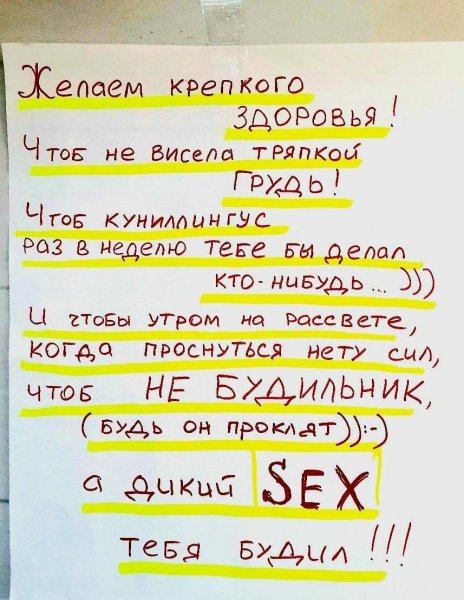 Желаем крепкого
ЗДОРОВЬЯ!
Чтоб не висела тряпкой
ГРУДЬ!
Чтоб куниллингус
раз в неделю тебе бы делал
кто-нибудь... )))
И чтобы утром на рассвете,
когда проснуться нету сил,
чтоб НЕ БУДИЛЬНИК,
(будь он проклят)):-)
а дикий SEX
тебя будил!!!